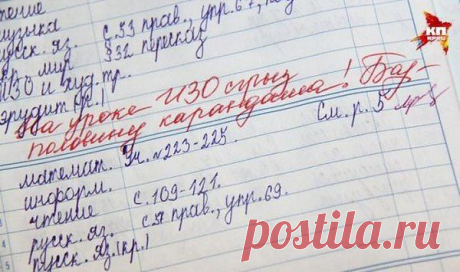 чтение
музыка
русск. яз. с.53 прав., упр.67,
окр. мир §32 пересказ
ИЗО и худ. тр.
эрудит (кр.)
На уроке ИЗО сгрыз
половину карандаша! Бар-
См. р. 5
математ. Уч. №223-225.
информ.
чтение с.109-121.
русск. яз. с.71 прав., упр.69.
русск. яз. (кр.)
КП
KP.RU
postila.ru